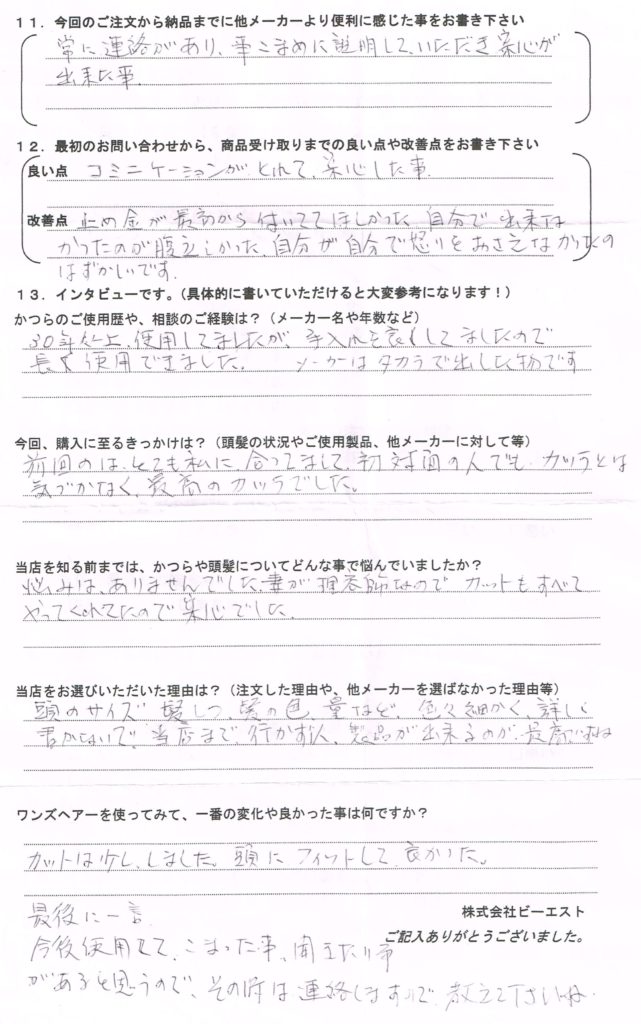 11．今回のご注文から納品までに他メーカーより便利に感じた事をお書き下さい
常に連絡があり、事こまめに説明して、いただき安心が
出来た事。
12．最初のお問い合わせから、商品受け取りまでの良い点や改善点をお書き下さい
良い点 コミニケーションがとれて、安心した事。
改善点 止め金が最初から付いててほしかった、自分で出来な
かったのが腹立しかった、自分が自分で怒りをおさえなかったの
はずかしいです。
13．インタビューです。（具体的に書いていただけると大変参考になります！）
かつらのご使用歴や、相談のご経験は？（メーカー名や年数など）
30年以上、使用してましたが、手入れを良くしてましたので
長く使用できました。 メーカーはタカラで出した物です
今回、購入に至るきっかけは？（頭髪の状況やご使用製品、他メーカーに対して等）
前回のは、とても私に、合ってまして、初対面の人でも、カツラとは
気づかなく、最高のカツラでした。
当店を知る前までは、かつらや頭髪についてどんな事で悩んでいましたか？
悩みは、ありませんでした、妻が理容師なので カットもすべて
やってくれてたので安心でした。
当店をお選びいただいた理由は？（注文した理由や、他メーカーを選ばなかった理由等）
頭のサイズ 髪しつ、髪の色、量など、色々細かく、詳しく
書かないで、当店まで、行かずに、製品が出来るのが、最高ですね
ワンズヘアーを使ってみて、一番の変化や良かった事は何ですか？
カットは少し、しました。頭に フィットして、良かった。
株式会社ビーエスト
ご記入ありがとうございました。
最後に一言、
今後使用してて、こまった事、聞きたい事
があると思うので、その時は連絡しますので、教えて下さいね。